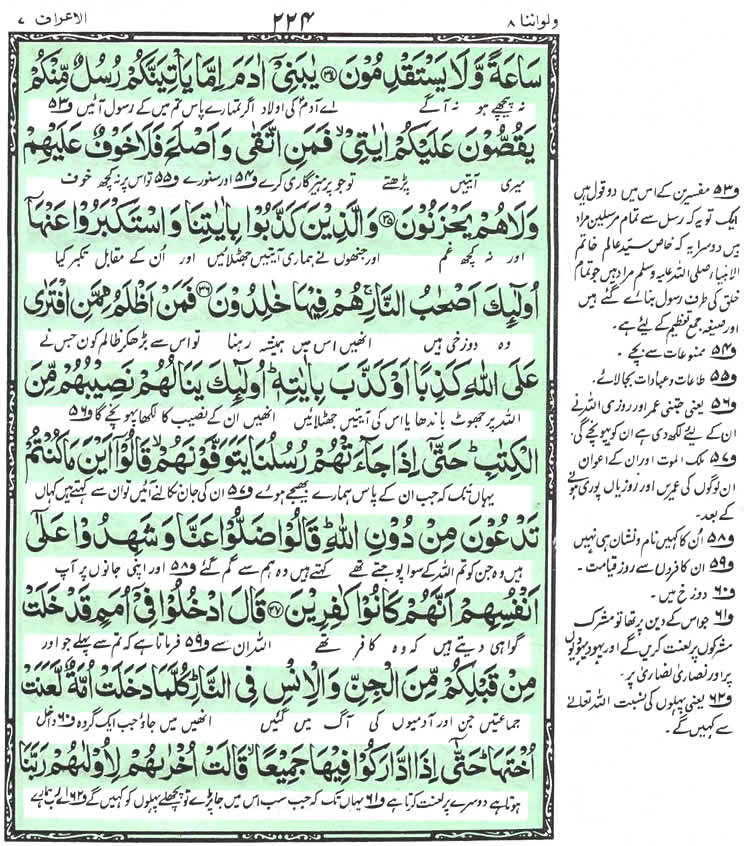 ولواننا ۸
۲۲۴
الاعراف ۷
سَاعَةً وَّلَا يَسْتَقْدِمُوْنَ ۝۳۴ يٰبَنِيْۤ اٰدَمَ اِمَّا يَاْتِيَنَّكُمْ رُسُلٌ مِّنْكُمْ
نہ پیچھے ہو نہ آگے اے آدم کی اولاد اگر تمہارے پاس تم میں کے رسول آئیں ف۵۳
يَقُصُّوْنَ عَلَيْكُمْ اٰيٰتِيْ ۙ فَمَنِ اتَّقٰى وَ اَصْلَحَ فَلَا خَوْفٌ عَلَيْهِمْ
میری آیتیں پڑھتے تو جو پرہیزگاری کرے ف۵۴ اور سنورے ف۵۵ تو اس پر نہ کچھ خوف
وَلَا هُمْ يَحْزَنُوْنَ ۝۳۵ وَالَّذِيْنَ كَذَّبُوْا بِاٰيٰتِنَا وَاسْتَكْبَرُوْا عَنْهَاۤ
اور نہ کچھ غم اور جنھوں نے ہماری آیتیں جھٹلائیں اور اُن کے مقابل تکبر کیا
اُولٰٓئِكَ اَصْحٰبُ النَّارِ ۚ هُمْ فِيْهَا خٰلِدُوْنَ ۝۳۶ فَمَنْ اَظْلَمُ مِمَّنِ افْتَرٰى
وہ دوزخی ہیں انھیں اس میں ہمیشہ رہنا تو اس سے بڑھ کر ظالم کون جس نے
عَلَى اللّٰهِ كَذِبًا اَوْ كَذَّبَ بِاٰيٰتِهٖ ؕ اُولٰٓئِكَ يَنَالُهُمْ نَصِيْبُهُمْ مِّنَ
اللہ پر جھوٹ باندھا یا اس کی آیتیں جھٹلائیں انھیں ان کے نصیب کا لکھا پہونچے گا ف۵۶
الْكِتٰبِ ؕ حَتّٰۤى اِذَا جَآءَتْهُمْ رُسُلُنَا يَتَوَفَّوْنَهُمْ ۙ قَالُوْۤا اَيْنَ مَا كُنْتُمْ
یہاں تک کہ جب ان کے پاس ہمارے بھیجے ہوئے ف۵۷ ان کی جان نکالنے آئیں تو ان سے کہتے ہیں کہاں
تَدْعُوْنَ مِنْ دُوْنِ اللّٰهِ ؕ قَالُوْا ضَلُّوْا عَنَّا وَ شَهِدُوْا عَلٰۤى
ہیں وہ جن کو تم اللہ کے سوا پوجتے تھے کہتے ہیں وہ ہم سے گم گئے ف۵۸ اور اپنی جانوں پر آپ
اَنْفُسِهِمْ اَنَّهُمْ كَانُوْا كٰفِرِيْنَ ۝۳۷ قَالَ ادْخُلُوْا فِيْۤ اُمَمٍ قَدْ خَلَتْ
گواہی دیتے ہیں کہ وہ کافر تھے اللہ ان سے ف۵۹ فرماتا ہے کہ تم سے پہلے جو اور
مِنْ قَبْلِكُمْ مِّنَ الْجِنِّ وَ الْاِنْسِ فِي النَّارِ ؕ كُلَّمَا دَخَلَتْ اُمَّةٌ لَّعَنَتْ
جماعتیں جن اور آدمیوں کی آگ میں گئیں انھیں میں جاؤ جب ایک گروہ ف۶۰ داخل
اُخْتَهَا ؕ حَتّٰۤى اِذَا ادَّارَكُوْا فِيْهَا جَمِيْعًا ۙ قَالَتْ اُخْرٰىهُمْ لِاُوْلٰىهُمْ رَبَّنَا
ہوتا ہے دوسرے پر لعنت کرتا ہے ف۶۱ یہاں تک کہ جب سب اس میں جا پڑے تو پچھلے پہلوں کو کہیں گے ف۶۲ اے رب ہمارے
ف۵۳ مفسرین کے اس میں دو قول ہیں
ایک تو یہ کہ رسل سے تمام مرسلین مراد
ہیں دوسرا یہ کہ خاص سید عالم خاتم
الانبیاء صلی اللہ علیہ وسلم مراد ہیں جو تمام
خلق کی طرف رسول بنائے گئے ہیں
اور صیغہ جمع تعظیم کے لیے ہے۔
ف۵۴ ممنوعات سے بچے۔
ف۵۵ طاعات و عبادات بجا لائے۔
ف۵۶ یعنی جتنی عمر اور روزی اللہ نے
ان کے لیے لکھ دی ہے ان کو پہونچے گی۔
ف۵۷ ملک الموت اور ان کے اعوان
ان لوگوں کی عمریں اور روزیاں پوری ہونے
کے بعد۔
ف۵۸ اُن کا کہیں نام و نشان ہی نہیں
ف۵۹ ان کافروں سے روز قیامت۔
ف۶۰ دوزخ میں۔
ف۶۱ جو اس کے دین پر تھا تو مشرک
مشرکوں پر لعنت کریں گے اور یہود یہودیوں
پر اور نصاریٰ نصاریٰ پر۔
ف۶۲ یعنی پہلوں کی نسبت اللہ تعالےٰ
سے کہیں گے۔